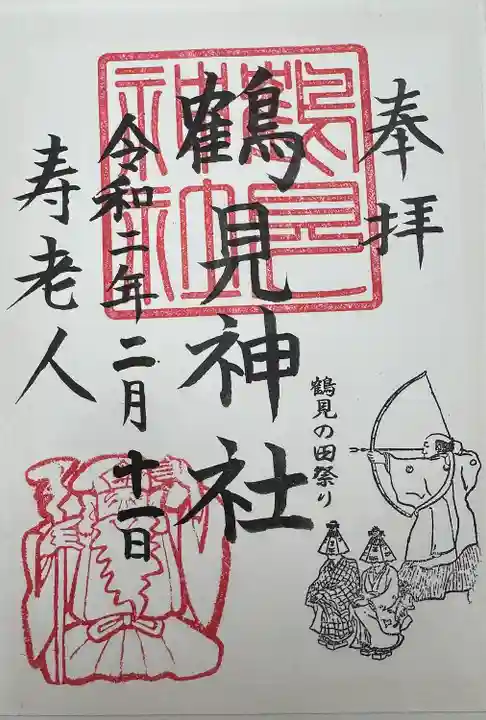 奉拝
鶴見神社
鶴見神社
鶴見の田祭り
令和二年二月十一日
寿老人